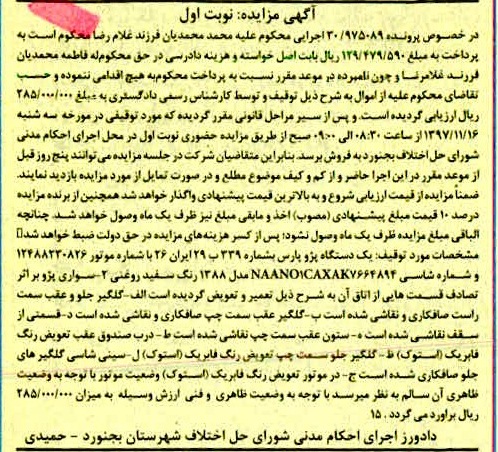 آگهی مزایده: نوبت اول
در خصوص پرونده ۳۰/۹۷۵۰۸۹ اجرایی محکوم علیه محمد محمدیان فرزند غلام رضا محکوم است به
پرداخت به مبلغ ۱۲۹/۴۷۹/۵۹۰ ریال بابت اصل خواسته و هزینه دادرسی در حق محکوم‌له فاطمه محمدیان
فرزند غلامرضا و چون نامبرده در موعد مقرر نسبت به پرداخت محکوم‌به هیچ اقدامی ننموده و حسب
تقاضای محکوم علیه از اموال به شرح ذیل توقیف و توسط کارشناس رسمی دادگستری به مبلغ ۲۸۵/۰۰۰/۰۰۰
ریال ارزیابی گردیده است. و پس از سیر مراحل قانونی مقرر گردیده که مورد توقیفی در مورخه سه شنبه
۱۳۹۷/۱۱/۱۶ از ساعت ۰۸:۳۰ الی ۰۹:۰۰ صبح از طریق مزایده حضوری نوبت اول در محل اجرای احکام مدنی
شورای حل اختلاف بجنورد به فروش برسد. بنابراین متقاضیان شرکت در جلسه مزایده می‌توانند پنج روز قبل
از موعد مقرر در این اجرا حاضر و از کم و کیف موضوع مطلع و در صورت تمایل از مورد مزایده بازدید نمایند.
ضمناً مزایده از قیمت ارزیابی شروع و به بالاترین قیمت پیشنهادی واگذار خواهد شد همچنین از برنده مزایده
درصد ۱۰ قیمت مبلغ پیشنهادی (مصوب) اخذ و مابقی مبلغ نیز ظرف یک ماه وصول خواهد شد. چنانچه
الباقی مبلغ مزایده ظرف یک ماه وصول نشود؛ پس از کسر هزینه‌های مزایده در حق دولت ضبط خواهد شد
مشخصات مورد توقیف: یک دستگاه پژو پارس بشماره ۳۳۹ ب ۲۹ ایران ۲۶ با شماره موتور ۱۲۴۸۸۲۳۰۸۲۶
و شماره شاسی NAAN۰۱CAXAK۷۶۶۴۸۹۴ مدل ۱۳۸۸ رنگ سفید روغنی ۲-سواری پژو بر اثر
تصادف قسمت هایی از اتاق آن به شرح ذیل تعمیر و تعویض گردیده است الف-گلگیر جلو و عقب سمت
راست صافکاری و نقاشی شده است ب-گلگیر عقب سمت چپ صافکاری و نقاشی شده است د-قسمتی از
سقف نقاشی شده است ه-ستون عقب سمت چپ نقاشی شده است ط-درب صندوق عقب تعویض رنگ
فابریک (استوک) ظ-گلگیر جلو سمت چپ تعویض رنگ فابریک (استوک) ل-سینی شاسی گلگیر های
جلو صافکاری شده است ج-در موتور تعویض رنگ فابریک (استوک) وضعیت موتور با توجه به وضعیت
ظاهری آن سالم به نظر میرسد با توجه به وضعیت ظاهری و فنی ارزش وسیله به میزان ۲۸۵/۰۰۰/۰۰۰
ریال براورد می گردد . ۱۵
دادورز اجرای احکام مدنی شورای حل اختلاف شهرستان بجنورد - حمیدی